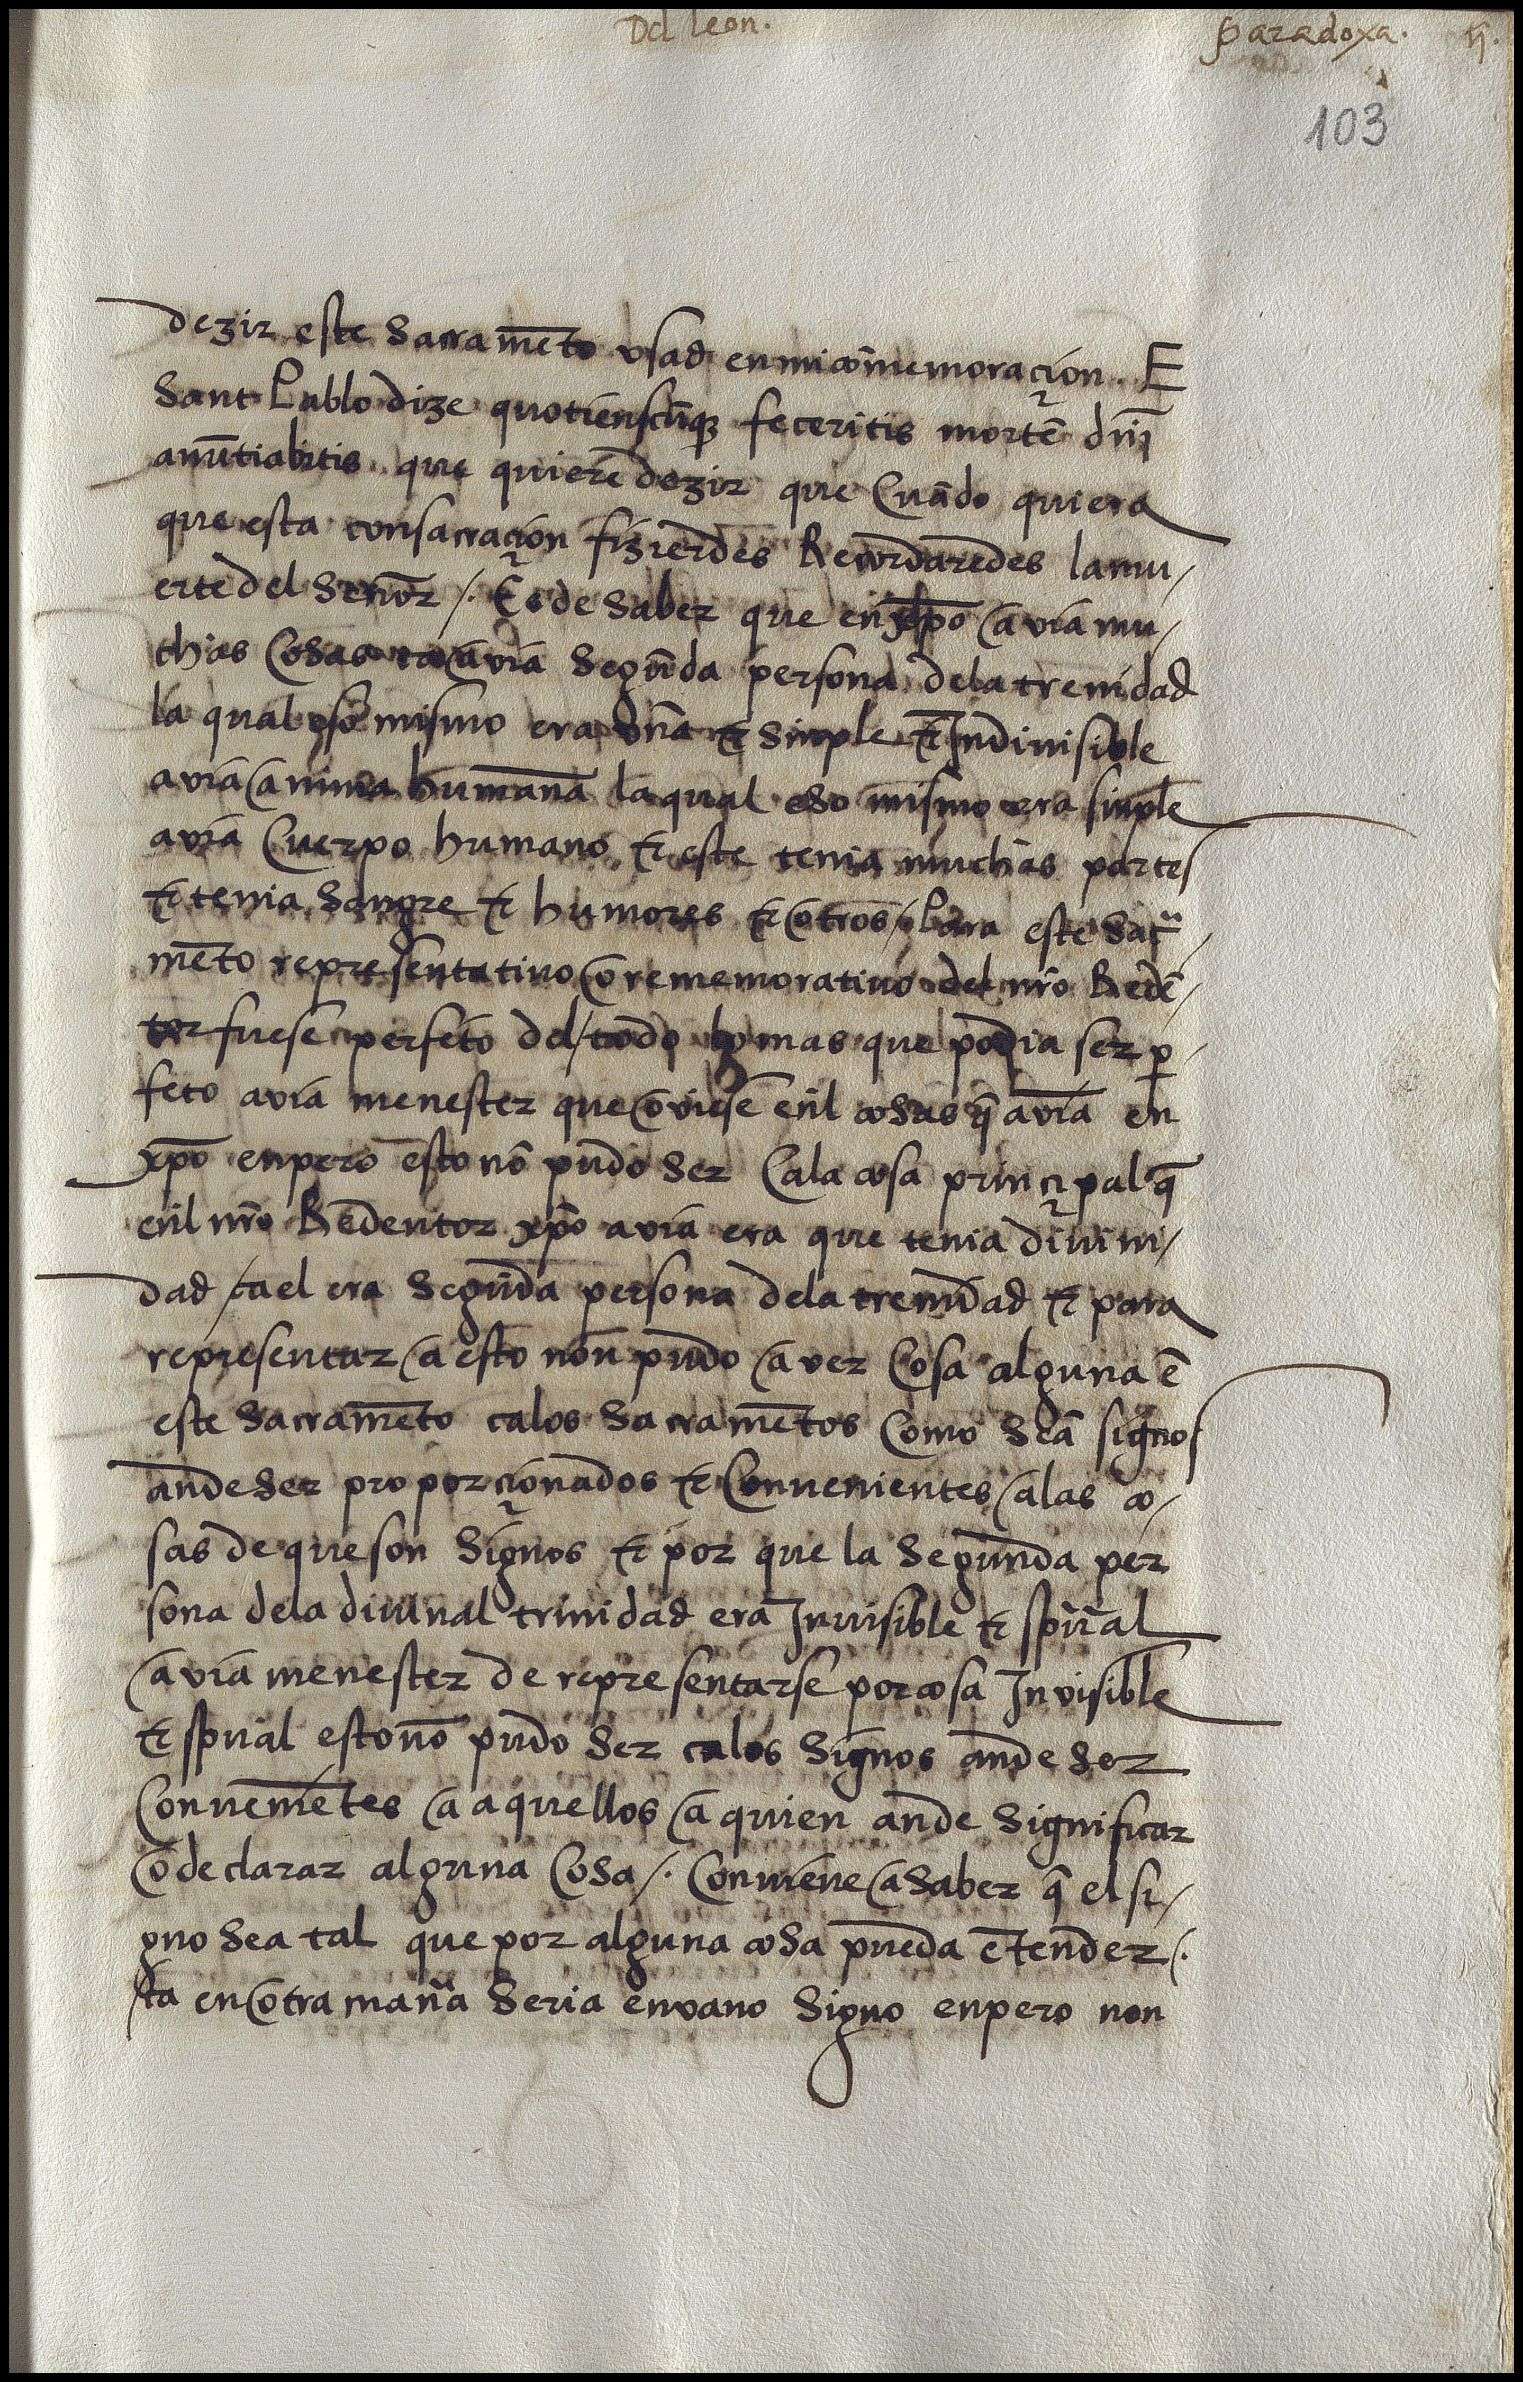 Del leon.
paradoxa. ij.
103
dezir este Sacramẽto vsad en mi cõmemoraçion. E
Sant Pablo dize quotienscũqꝫ feceritis mortẽ dñi
anũtiabitis que quierẽ dezir que Cuãdo quiera
que esta consacraçion fizierdes Recordaredes la mu/
erte del Señor /. Es de Saber que en xp̃o avia mu/
chas Cosas ca avia Segũda persona dela trenidad
la qual eso mismo era vña ⁊ Simple ⁊ Indiuisible
avia anima humana la qual eso mismo era simple
avia Cuerpo humano ⁊ este tenia muchas partes
⁊ tenia Sangre ⁊ humores ⁊ otros /. Para este Sacᵃ/
mẽto representatiuo o rememoratiuo del nr̃o Redẽ/
tor fuese perfeto del todo lo mas que podia ser ꝑ/
feto avia menester que oviese enl cosas q̃ avia en
xp̃o enpero esto nõ pudo Ser Ca la cosa prinçipal q̃
enl nr̃o Redentor xp̃o avia era que tenia diuini/
dad / ca el era Segũda persona dela trenidad ⁊ para
representar a esto non pudo aver Cosa alguna ẽ
este Sacramẽto ca los Sacramẽtos Como Seã signos
an de Ser proporçionados ⁊ Convenientes a las co/
sas de que son Signos ⁊ por que la Segunda per
sona dela diuinal trinidad era Invisible ⁊ spũal
avia menester de representarse por cosa Invisible
⁊ spũal esto nõ pudo Ser ca los Signos an de Ser
Conveniẽtes a aquellos a quien an de Significar
o declarar alguna Cosa /. Conviene a Saber q̃ el si/
gno Sea tal que por alguna cosa pueda ẽtender /.
ca en otra mañа Seria en vano Signo enpero non